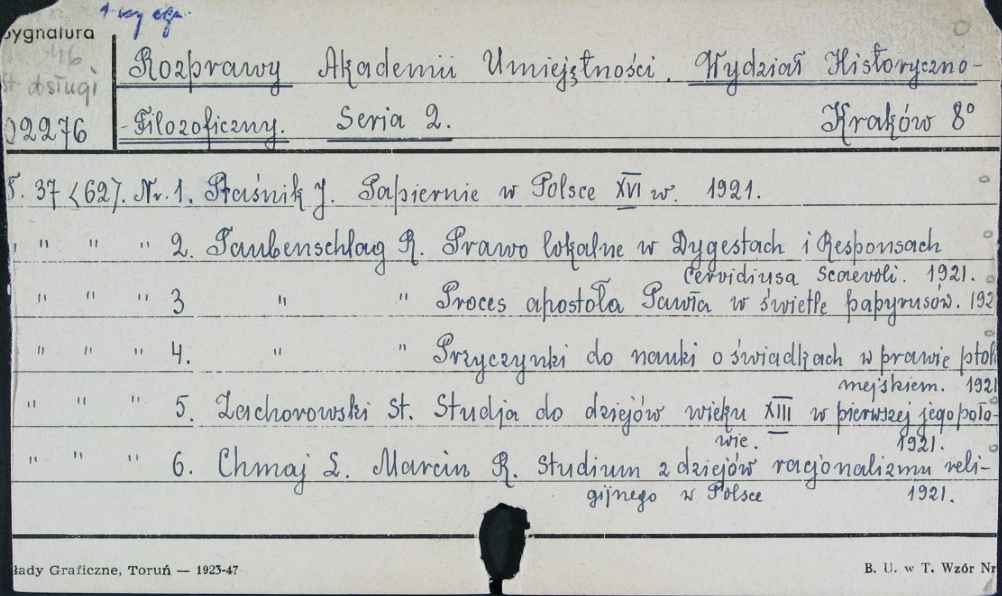 1 wy egz.
Sygnatura
46
st. obsługi
02276
Rozprawy Akademii Umiejętności. Wydział Historyczno-
-Filozoficzny. Seria 2. Kraków 8°
T. 37 (62). Nr. 1. Ptaśnik J. Papiernie w Polsce XVI w. 1921.
" " " 2. Taubenschlag R. Prawo lokalne w Dygestach i Responsach
Cervidiusa Scaevoli. 1921.
" " " 3 " " Proces apostoła Pawła w świetle papyrusów. 192
" " " 4. " " Przyczynki do nauki o świadkach w prawie ptole
mejskiem. 1921
" " " 5. Zachorowski St. Studja do dziejów wieku XIII w pierwszej jego poło-
wie. 1921.
" " " 6. Chmaj L. Marcin R. Studium z dziejów racjonalizmu reli-
gijnego w Polsce 1921.
łady Graficzne, Toruń — 1923-47
B. U. w T. Wzór Nr